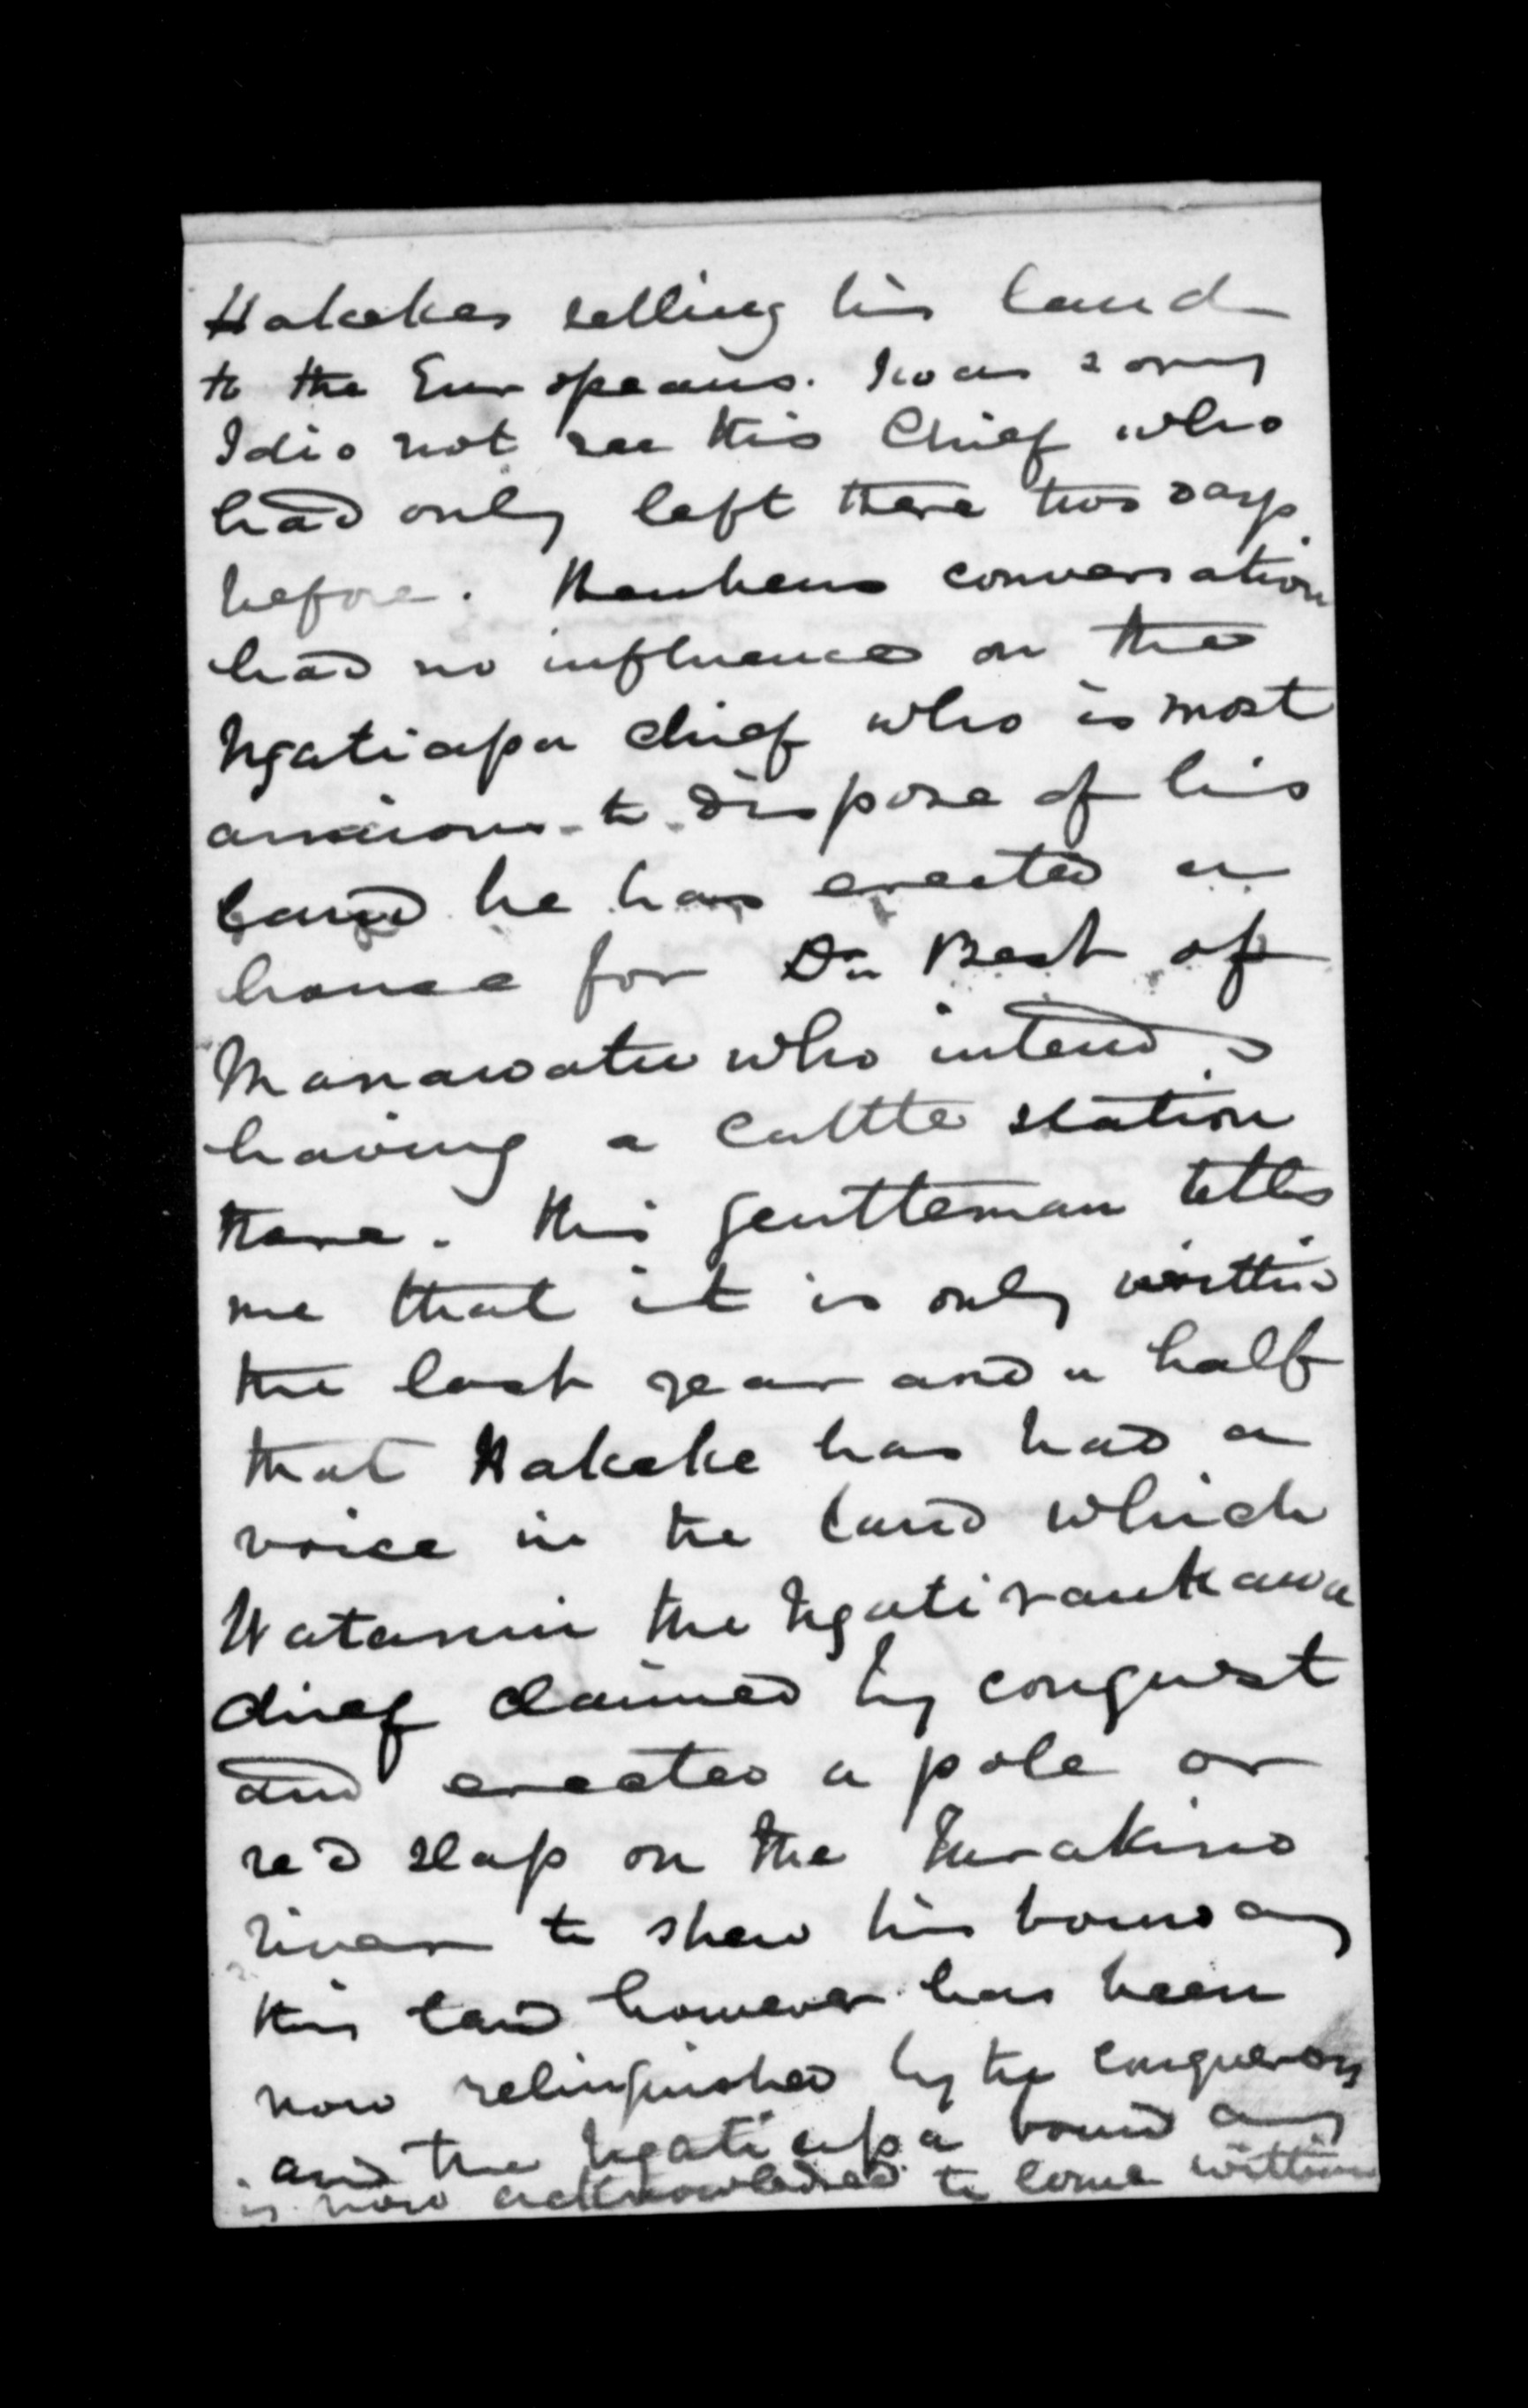 Hakekes selling his land
to the Europeans. I was sorry
I did not see this Chief who
had only left there two days
before. conversation
had no influence on the
Ngatiapa chief who is most
anxious to dispose of his
land he has erected a
house for Dr Best of
Manawatu who intends
having a cattle station
there. This gentleman tells
me that it is only within
the last year and a half
that Hakeke has had a
voice in the land which
Watanui the Ngatiraukawa
chief claimed by conquest
and erected a pole or
red stap on the Turakino
river to shew his boundary
this land however has been
now relinquished by the conquerors
and the Ngatiapa boundary
is now acknowledged to come within